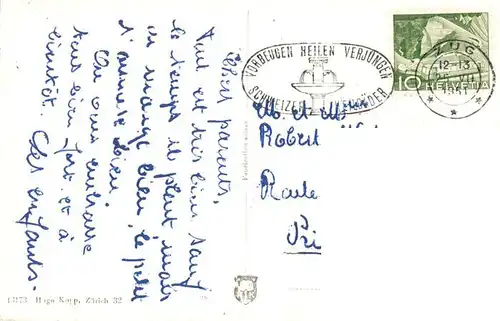 Chers parents,
Tout est très bien sauf
le temps il pleut mais
on mange bien, le petit
s'amuse bien.
On vous embrasse
tous bien fort et à
bientôt. Les enfants.
13173 Hugo Kopp, Zürich 32
VORBEUGEN HEILEN VERJÜNGEN
SCHWEIZER BÄDER
ZUG
12-13
10 HELVETIA
M. et Mme
Robert
Route
Pri